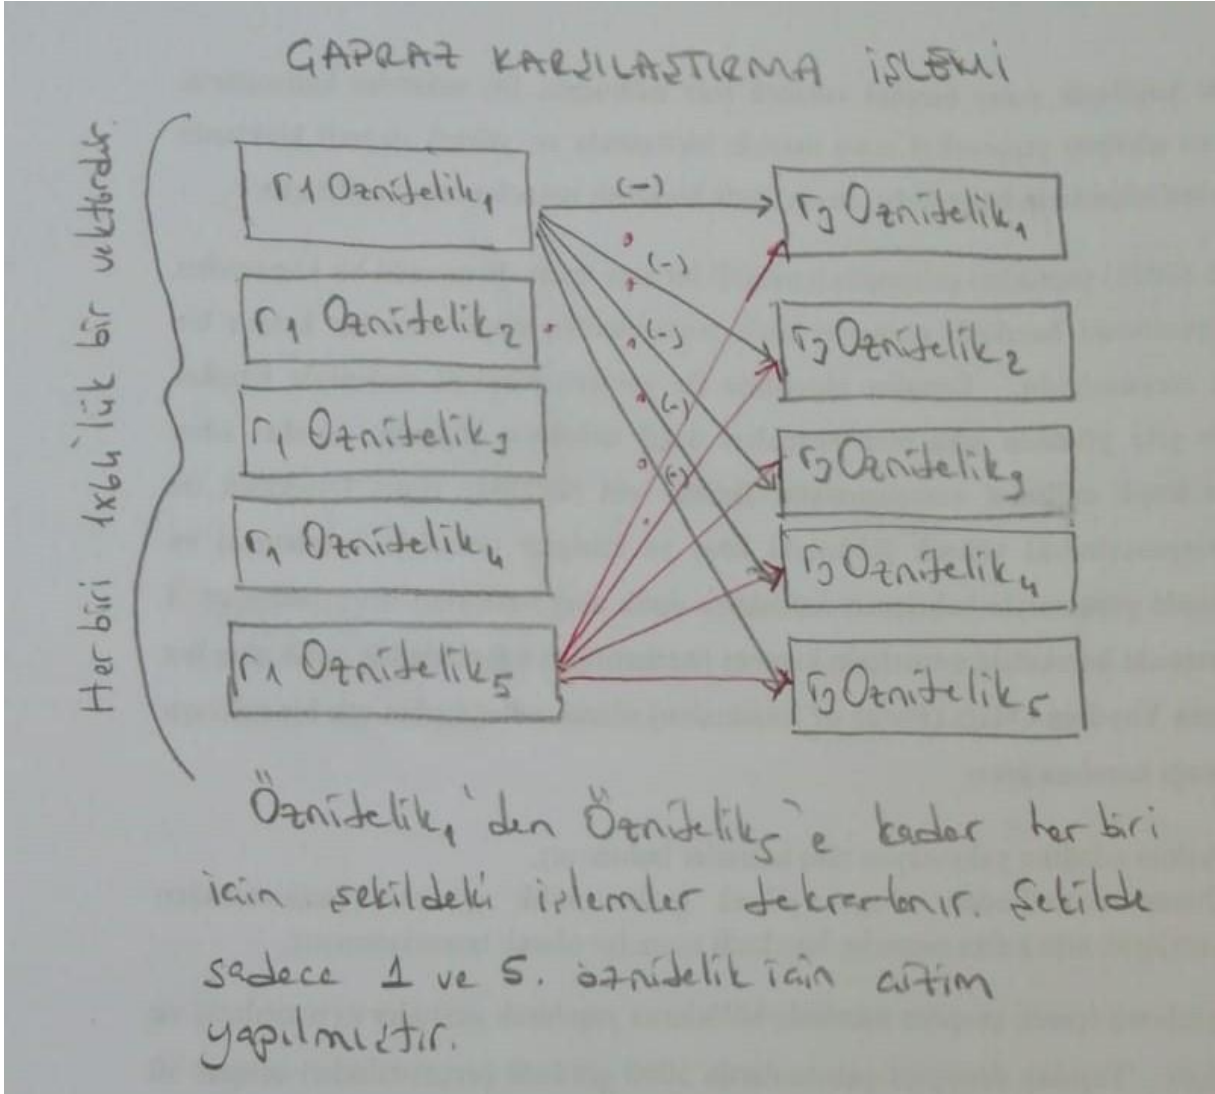 ÇAPRAZ KARŞILAŞTIRMA İŞLEMİ
Her biri 1x64'lük bir vektördür.
r1 Öznitelik1
r1 Öznitelik2
r1 Öznitelik3
r1 Öznitelik4
r1 Öznitelik5
(-)
(-)
(-)
(-)
(-)
r3 Öznitelik1
r3 Öznitelik2
r3 Öznitelik3
r3 Öznitelik4
r3 Öznitelik5
Öznitelik1'den Öznitelik5'e kadar her biri
için şekildeki işlemler tekrarlanır. Şekilde
sadece 1 ve 5. öznitelik için çizim
yapılmıştır.